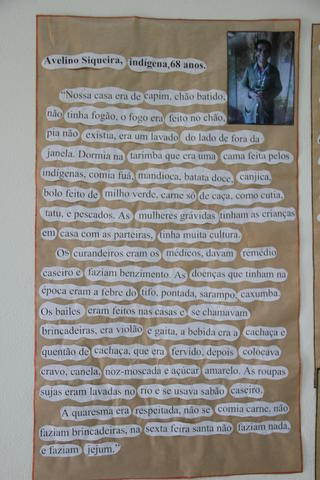 Avelino Siqueira, indígena, 68 anos.
"Nossa casa era de capim, chão batido,
não tinha fogão, o fogo era feito no chão,
pia não existia, era um lavado do lado de fora da
janela. Dormia na tarimba que era uma cama feita pelos
indígenas, comia fuá, mandioca, batata doce, canjica,
bolo feito de milho verde, carne só de caça, como cutia,
tatu, e pescados. As mulheres grávidas tinham as crianças
em casa com as parteiras, tinha muita cultura.
Os curandeiros eram os médicos, davam remédio
caseiro e faziam benzimento. As doenças que tinham na
época eram a febre do tifo, pontada, sarampo, caxumba.
Os bailes eram feitos nas casas e se chamavam
brincadeiras, era violão e gaita, a bebida era a cachaça e
quentão de cachaça, que era fervido, depois colocava
cravo, canela, noz-moscada e açúcar amarelo. As roupas
sujas eram lavadas no rio e se usava sabão caseiro.
A quaresma era respeitada, não se comia carne, não
faziam brincadeiras, na sexta feira santa não faziam nada,
e faziam jejum."